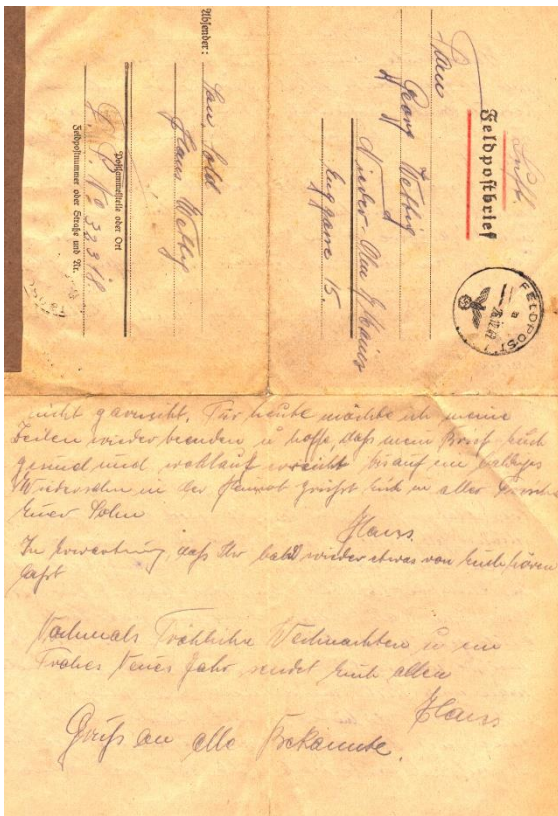 Feldpostbrief
Georg Wettig
Nieder-Olm b/ Mainz
Enggasse 15.
FELDPOST
a
Absender:
San. Sold
Hans Wettig
Postsammelstelle oder Ort
F. P. No
Feldpostnummer oder Straße und Nr.
nicht gereicht. Für heute möchte ich meine
Zeilen wieder beenden u hoffe, dass mein Brief Euch
gesund und wohlauf erreicht bis auf ein baldiges
Wiedersehn in der Heimat grüsst Euch in aller
Euer Sohn
Hans
In Erwartung, dass Ihr bald wieder etwas von Euch hören
lasst
Nochmals Fröhliche Weihnachten u ein
Frohes Neues Jahr sendet Euch allen
Hans
Gruß an alle Bekannte.